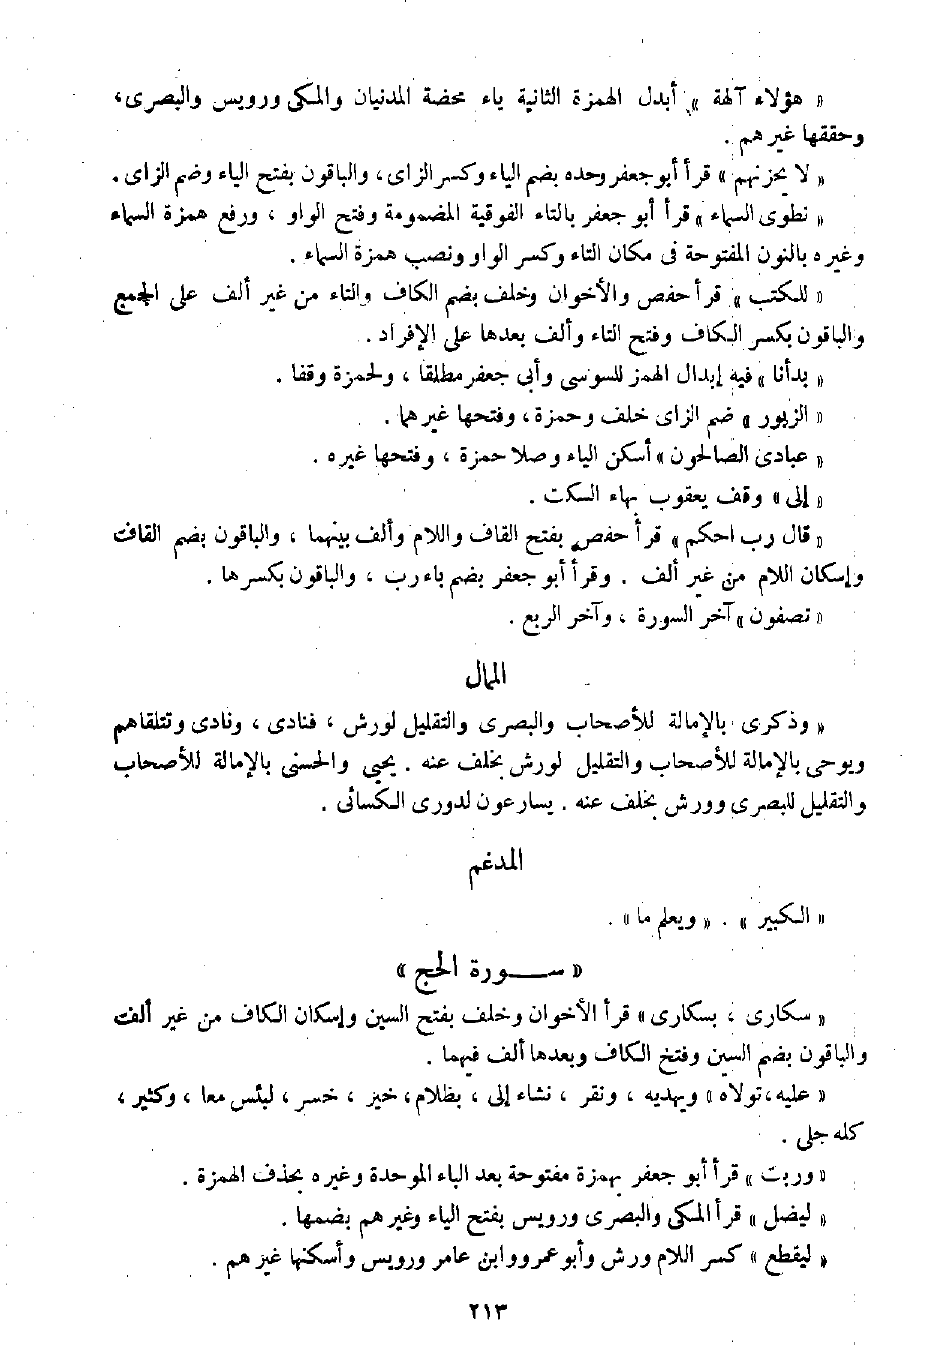 « هؤلاء آلهة » أبدل الهمزة الثانية ياء محضة المدنيان والمكى ورويس والبصرى،
وحققها غيرهم .
« لا يحزنهم » قرأ أبو جعفر وحده بضم الياء وكسر الزاى، والباقون بفتح الياء وضم الزاى .
« نطوى السماء » قرأ أبو جعفر بالتاء الفوقية المضمومة وفتح الواو ، ورفع همزة السماء
وغيره بالنون المفتوحة فى مكان التاء وكسر الواو ونصب همزة السماء .
« للكتب » قرأ حفص والأخوان وخلف بضم الكاف والتاء من غير ألف على الجمع
والباقون بكسر الكاف وفتح التاء وألف بعدها على الإفراد .
« بدأنا » فيه إبدال الهمز للسوسى وأبى جعفر مطلقا ، ولحمزة وقفا .
« الزبور » ضم الزاى خلف وحمزة، وفتحها غيرهما .
« عبادى الصالحون » أسكن الياء وصلا حمزة ، وفتحها غيره .
« إلى » وقف يعقوب بهاء السكت .
« قال رب احكم » قرأ حفص بفتح القاف واللام وألف بينهما ، والباقون بضم القاف
وإسكان اللام من غير ألف . وقرأ أبو جعفر بضم باء رب ، والباقون بكسرها .
« تصفون » آخر السورة ، وآخر الربع .
الممال
« وذكرى بالإمالة للأصحاب والبصرى والتقليل لورش ، فنادى ، ونادى وتتلقاهم
ويوحى بالإمالة للأصحاب والتقليل لورش بخلف عنه . يحيى والحسنى بالإمالة للأصحاب
والتقليل للبصرى وورش بخلف عنه . يسارعون لدورى الكسائى .
المدغم
« الكبير » . « ويعلم ما » .
« سـورة الحج »
« سكارى ، بسكارى » قرأ الأخوان وخلف بفتح السين وإسكان الكاف من غير ألف
والباقون بضم السين وفتح الكاف وبعدها ألف فيهما .
« عليه، تولاه » ويهديه ، ونقر ، نشاء إلى ، بظلام، خير ، خسر ، لبئس معا ، وكثير ،
كله جلى .
« وربت » قرأ أبو جعفر بهمزة مفتوحة بعد الباء الموحدة وغيره بحذف الهمزة .
« ليضل » قرأ المكى والبصرى ورويس بفتح الياء وغيرهم بضمها .
« ليقطع » كسر اللام ورش وأبو عمرو وابن عامر ورويس وأسكنها غيرهم .
٢١٣